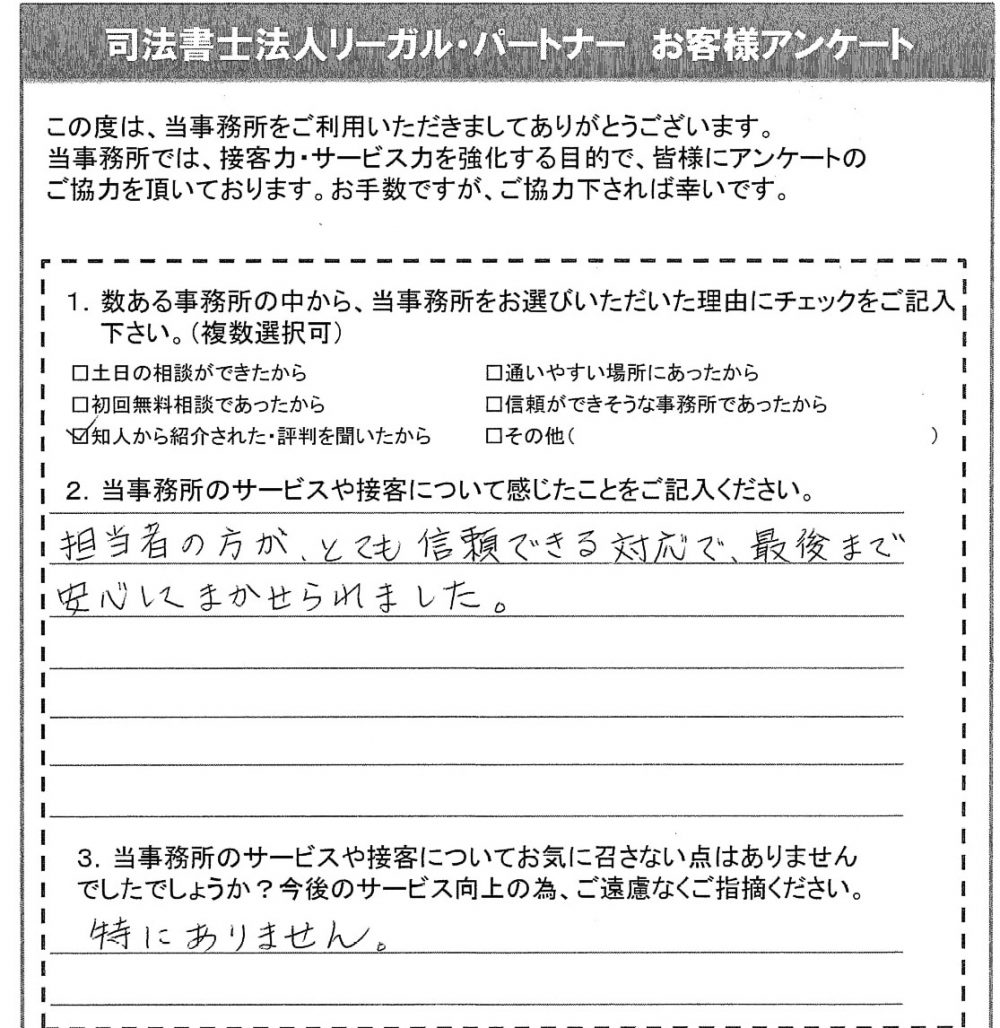 司法書士法人リーガル・パートナー お客様アンケート
この度は、当事務所をご利用いただきましてありがとうございます。
当事務所では、接客力・サービス力を強化する目的で、皆様にアンケートの
ご協力を頂いております。お手数ですが、ご協力下されば幸いです。
1. 数ある事務所の中から、当事務所をお選びいただいた理由にチェックをご記入
下さい。(複数選択可)
□土日の相談ができたから □通いやすい場所にあったから
□初回無料相談であったから □信頼ができそうな事務所であったから
☑知人から紹介された・評判を聞いたから □その他( )
2. 当事務所のサービスや接客について感じたことをご記入ください。
担当者の方が、とても信頼できる対応で、最後まで
安心してまかせられました。
3. 当事務所のサービスや接客についてお気に召さない点はありません
でしたでしょうか?今後のサービス向上の為、ご遠慮なくご指摘ください。
特にありません。